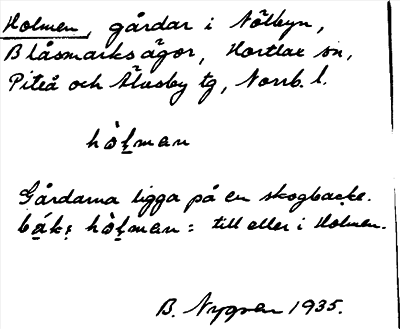 Holmen, gårdar i Nölbyn,
Blåsmarks ägor, Hortlax sn,
Piteå och Älvsby tg, Norrb. l.
hò̱lman
Gårdarna ligga på en skogbacke.
ba̱k: hò̱lman: till eller i Holmen.
B. Nygren 1935.